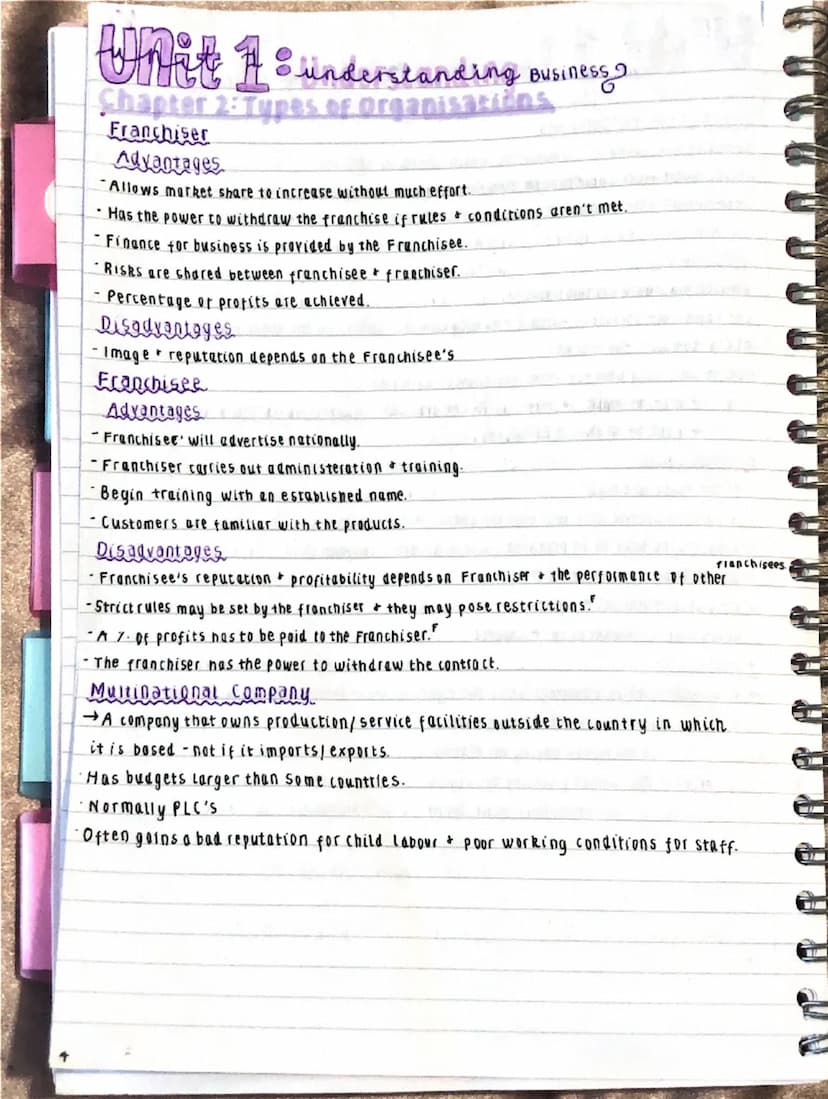 Unit 1: Understanding Business
Chapter 2: Types of Organisations
Franchiser
Advantages
- Allows market share to increase without much effort.
- Has the power to withdraw the franchise if rules + conditions aren't met.
- Finance for business is provided by the Franchisee.
- Risks are shared between franchisee + franchiser.
- Percentage of profits are achieved.
Disadvantages
- Image + reputation depends on the Franchisee's
Franchisee
Advantages
- Franchisee' will advertise nationally.
- Franchiser carries out administeration + training.
- Begin training with an established name.
- Customers are familiar with the products.
Disadvantages
- Franchisee's reputation + profitability depends on Franchiser + the performance of other franchisees
- Strict rules may be set by the franchiser + they may pose restrictions.F
- A % of profits has to be paid to the Franchiser.F
- The franchiser has the power to withdraw the contract.
Multinational Company
→ A company that owns production/service facilities outside the country in which
it is based - not if it imports/exports.
· Has budgets larger than some countries.
· Normally PLC's
· Often gains a bad reputation for child labour + poor working conditions for staff.
4